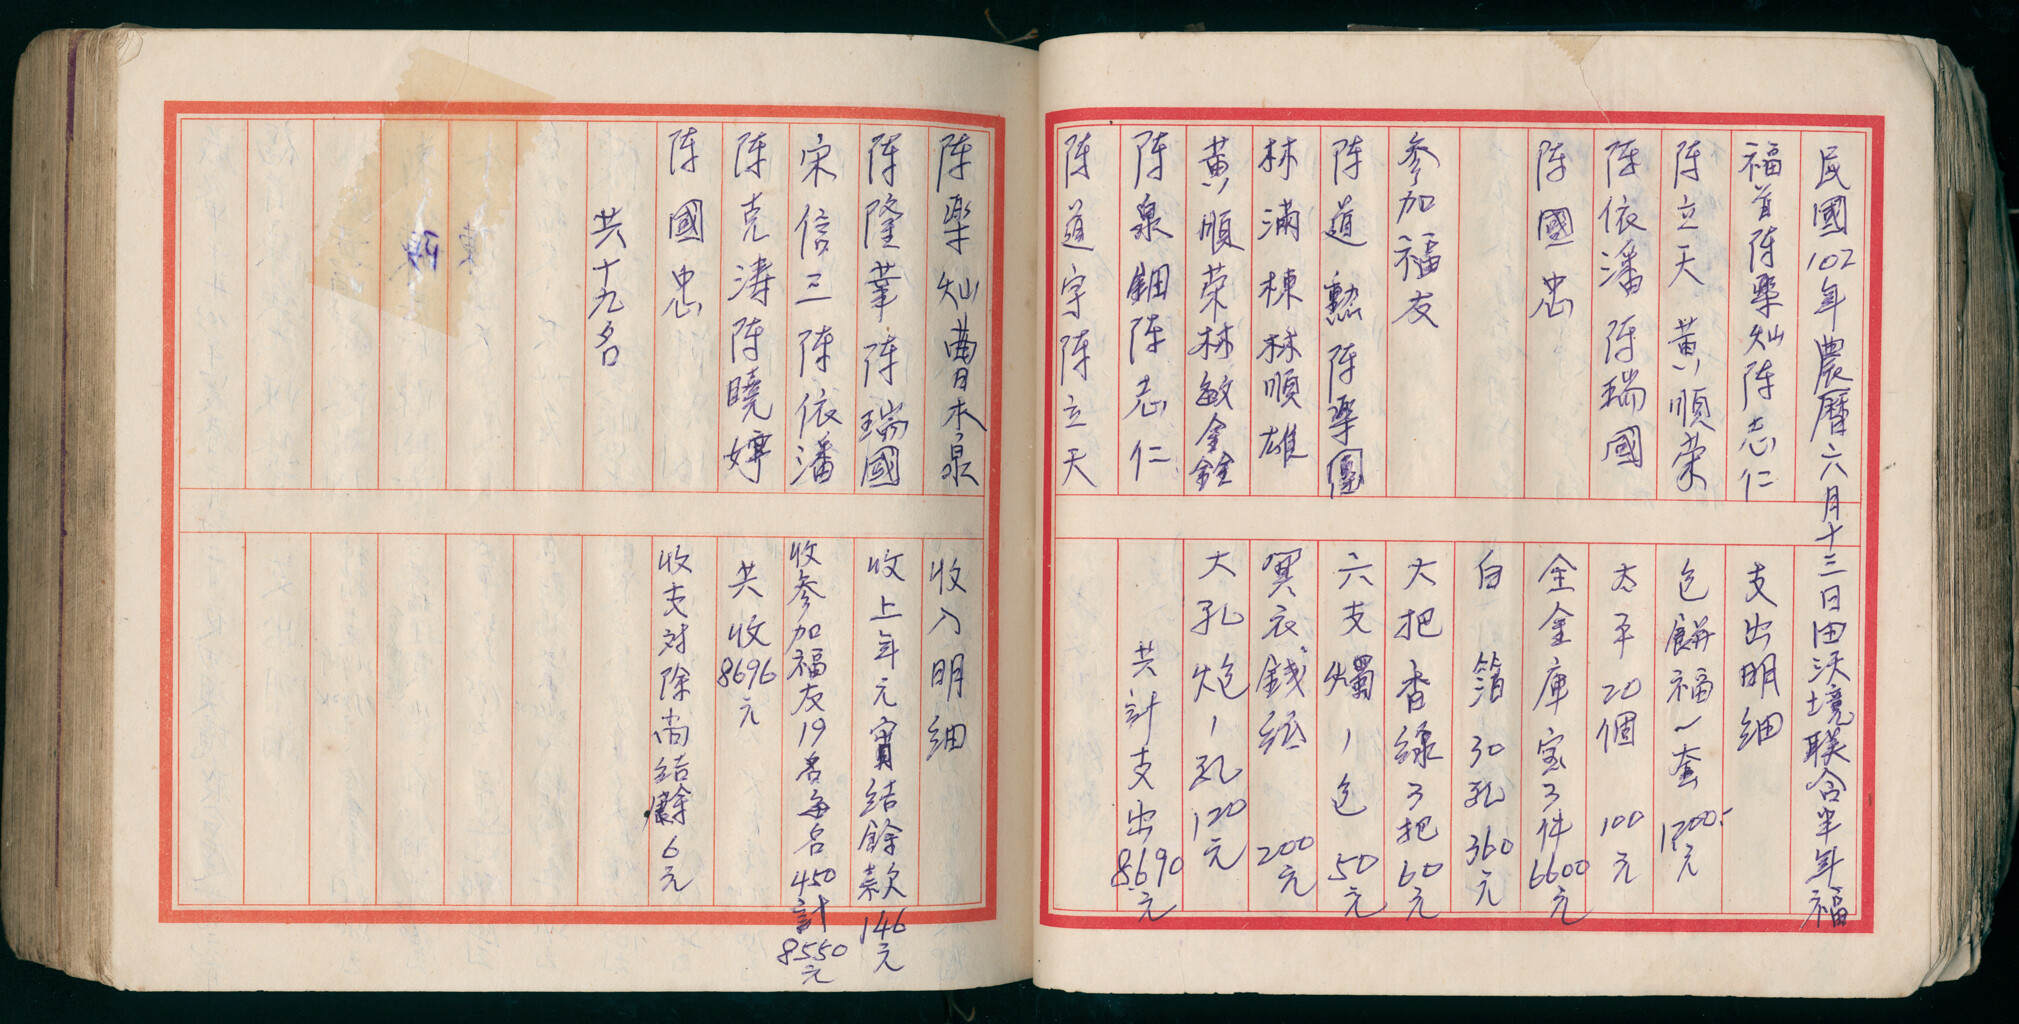 民國102年農曆六月十三日田沃境联合半年福
福首陈學灿陈志仁
陈立天 黃順荣
陈依潘 陈瑞國
陈國忠
参加福友
陈道勲 陈學團
林滿棟 林順雄
黃順荣 林敏金銓
陈泉鈿 陈志仁
陈道字 陈立天
支出明细
包餅福1套1200元
太平20個 100元
金金庫宝3件6600元
白箔30孔360元
大把香綠3把60元
六支燭1包50元
冥衣錢纸 200元
大孔炮1孔120元
共計支出8690元
陈學灿 曹木泉
陈隆華 陈瑞國
宋信三 陈依潘
陈克涛 陈曉婷
陈國忠
共十九名
收入明细
收上年元宵结餘款146元
收参加福友19名每名450計8550元
共收8696元
收支对除尚结餘6元